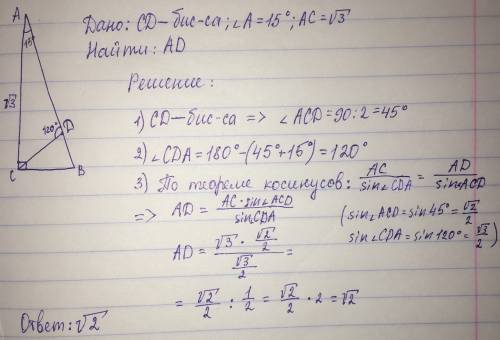 Дано: CD — бис-са; ∠A = 15°; AC = √3
Найти: AD
Решение:
1) CD — бис-са => ∠ACD = 90:2 = 45°
2) ∠CDA = 180° - (45° + 15°) = 120°
3) По теореме косинусов: AC/sin∠CDA = AD/sinACD
=> AD = AC·sin∠ACD/sinCDA (sin∠ACD = sin45° = √2/2
sin∠CDA = sin120° = √3/2)
AD = (√3 · √2/2)/(√3/2) =
= √2/2 : 1/2 = √2/2 · 2 = √2
Ответ: √2
A
15°
√3
120°
D
C
B